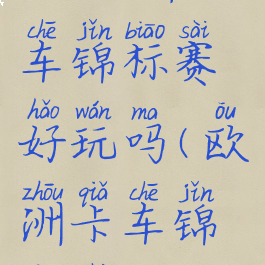 chē jǐn biāo sài
车锦标赛
hǎo wán ma ōu
好玩吗(欧
zhōu qiǎ chē jǐn
洲卡车锦